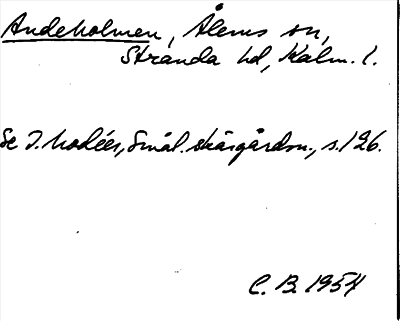 Andeholmen, Ålems sn,
Stranda hd, Kalm. l.
Se I. Modéer, Smål. skärgårdsn., s. 126.
C. B. 1954